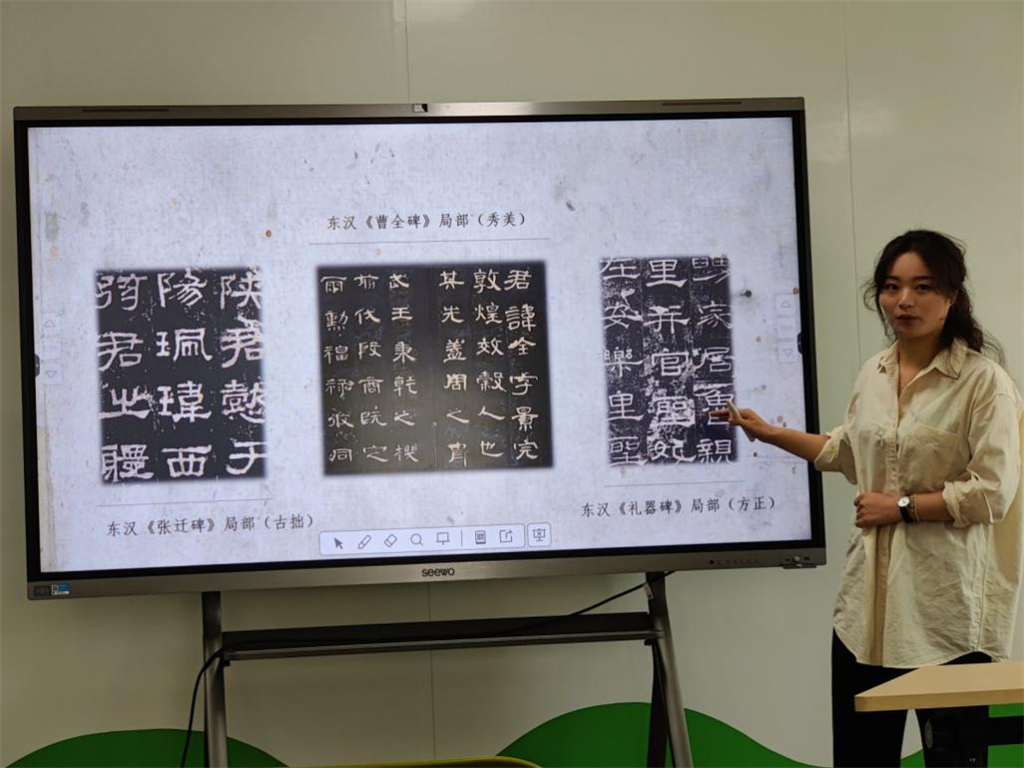 东汉《曹全碑》局部（秀美）
陕君懿于
陽珮瑋西
君之體
君諱全字景完
敦煌效穀人也
其先蓋周之胄
武王秉乾之機
翦伐殷商既定
爾勳福祿攸同
舅家居魯親
里并官聖妃
在安樂里聖
东汉《张迁碑》局部（古拙）
东汉《礼器碑》局部（方正）
seewo